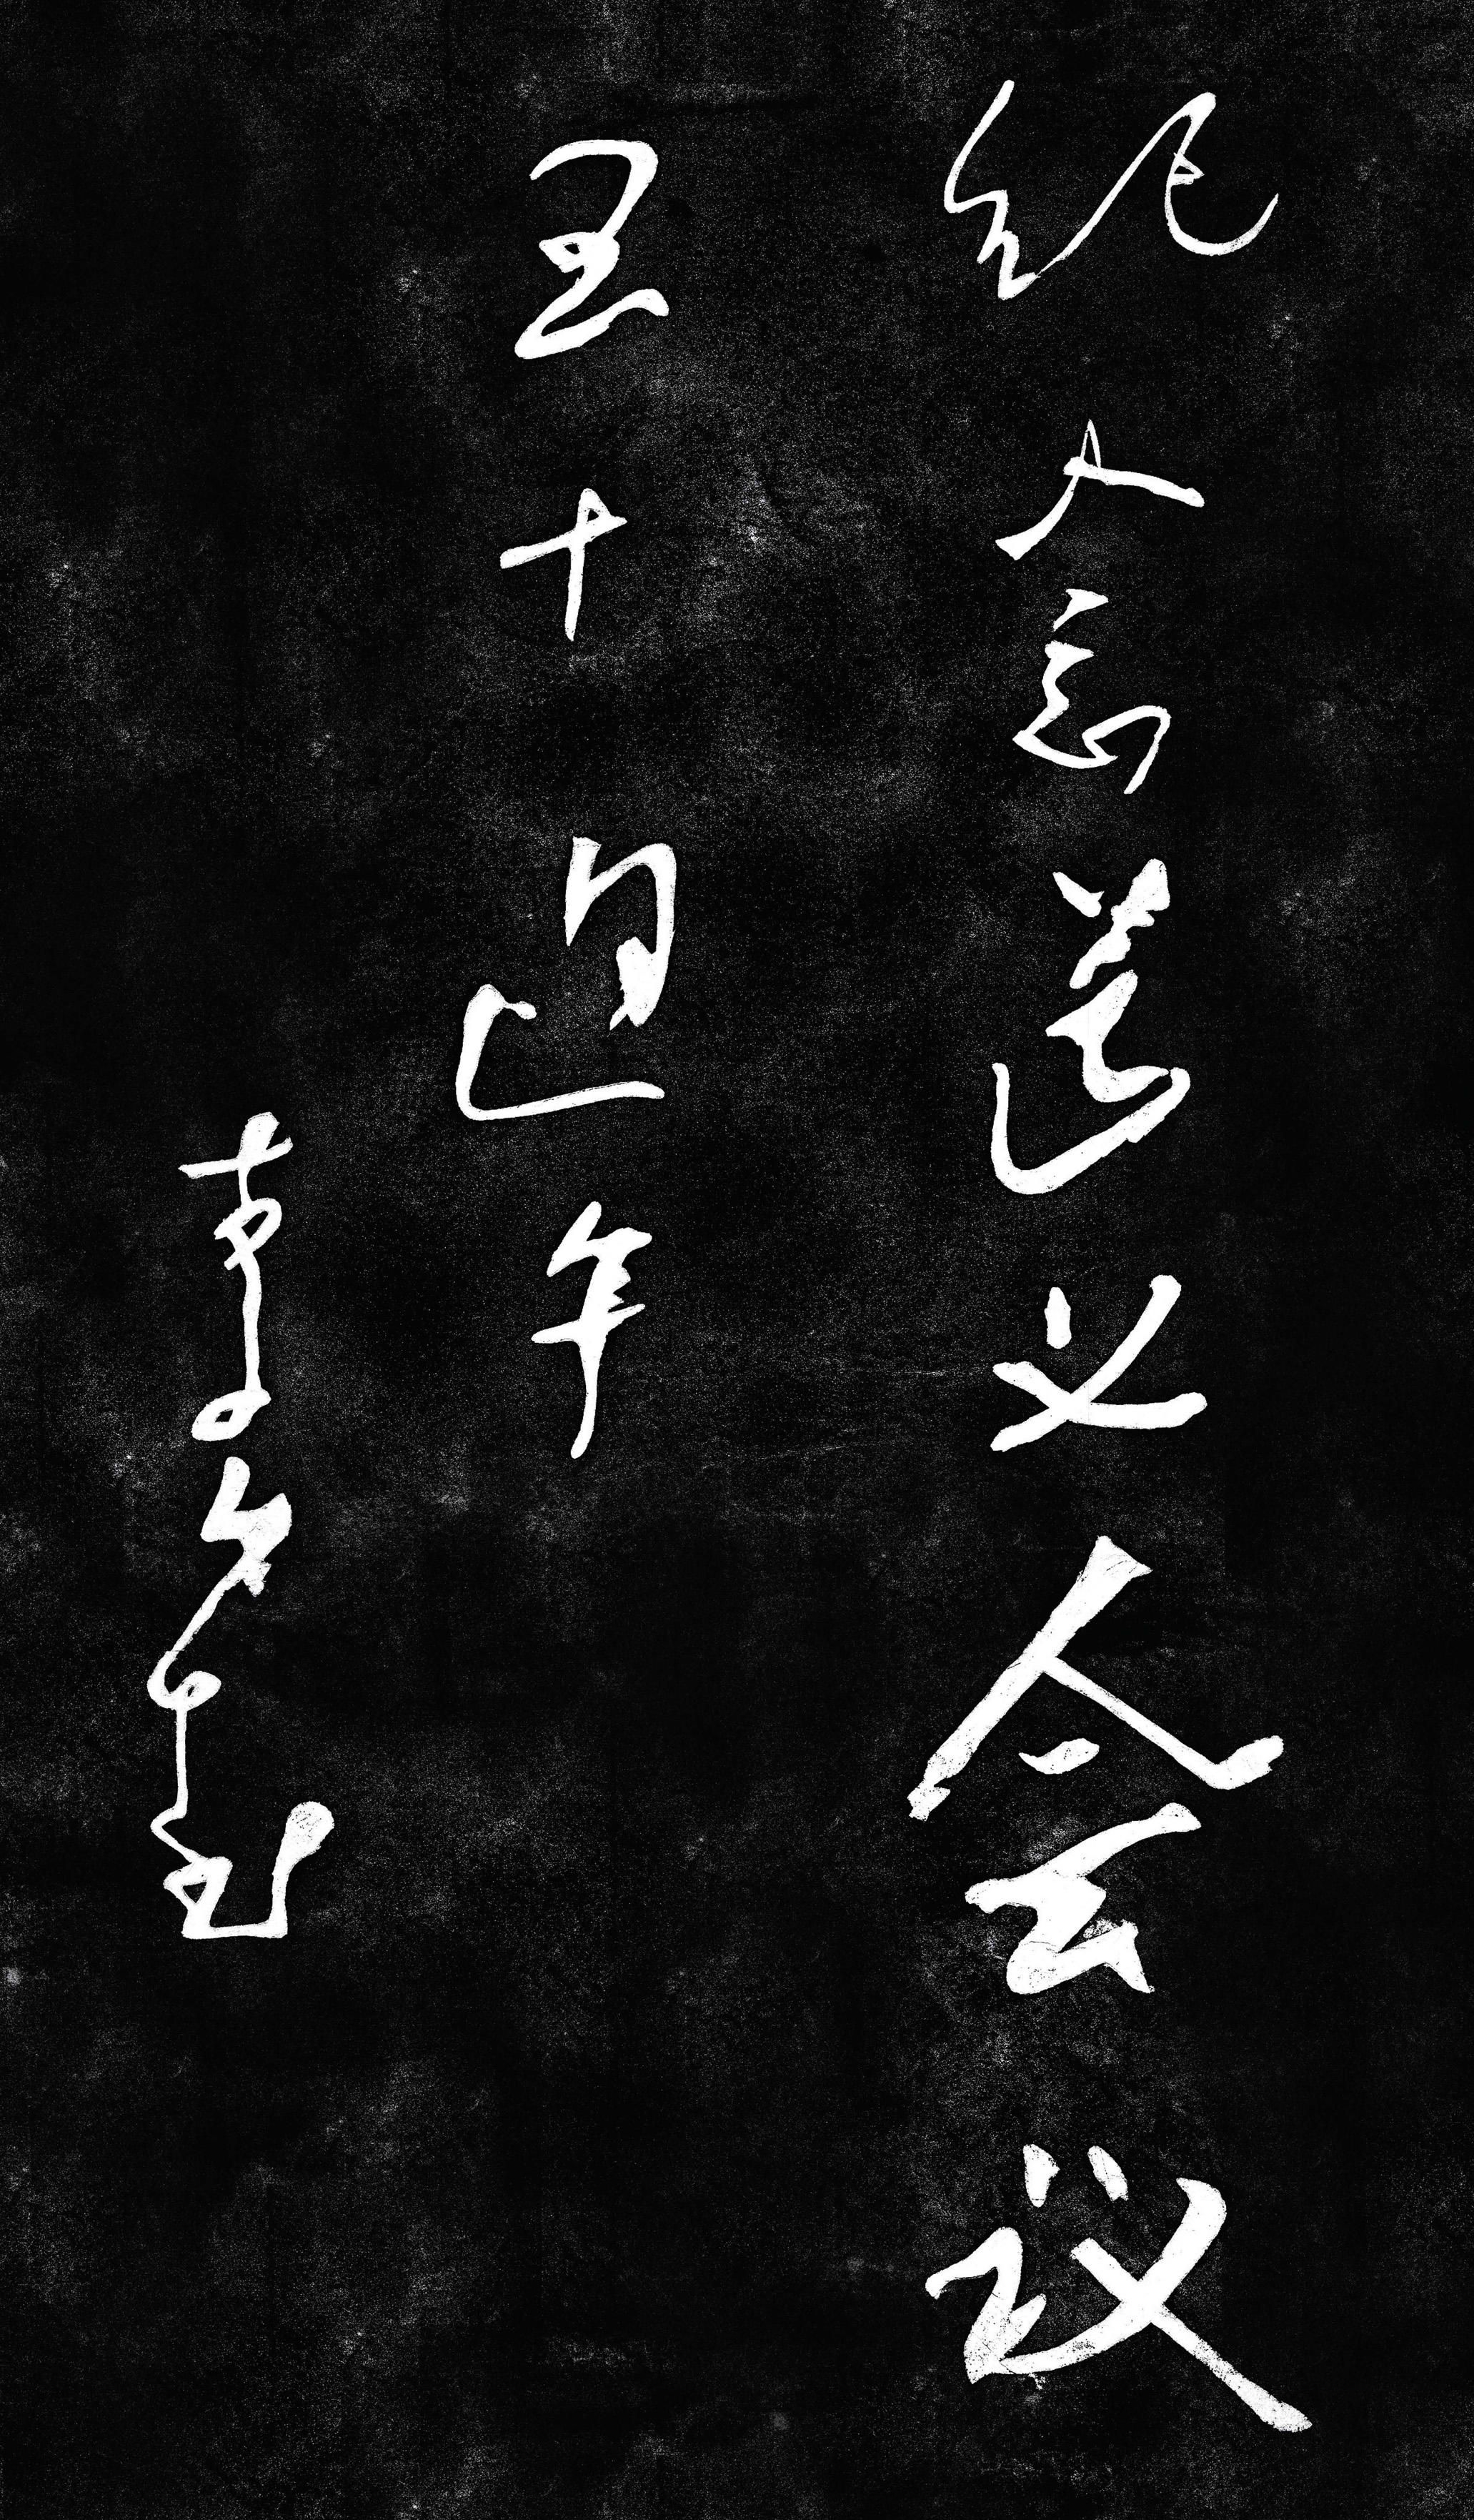 纪念遵义会议
五十周年
李